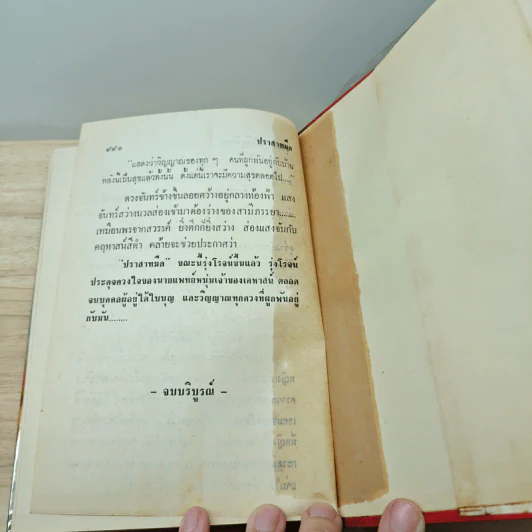 ๔๘๑ ปราสาทมืด
"แสดงว่าวิญญาณของทุก ๆ คนที่ผูกพันอยู่กับบ้าน
หลังนี้เป็นสุขแล้วทั้งนั้น ตั้งแต่นี้เราจะมีความสุขตลอดไป....."
ดวงจันทร์ข้างขึ้นลอยคว้างอยู่กลางท้องฟ้า แสง
จันทร์สว่างนวลส่องเข้ามาต้องร่างของสามีภรรยา........
เหมือนพรจากสวรรค์ ยิ่งดึกก็ยิ่งสว่าง ส่องแสงจับกับ
คฤหาสน์สีดำ คล้ายจะช่วยประกาศว่า
"ปราสาทมืด" ขณะนี้รุ่งโรจน์ขึ้นแล้ว รุ่งโรจน์
ประดุจดวงใจของนายแพทย์หนุ่มเจ้าของเคหาสน์ ตลอด
จนบุคคลผู้อยู่ใต้ใบบุญ และวิญญาณทุกดวงที่ผูกพันอยู่
กับมัน........
– จบบริบูรณ์ –